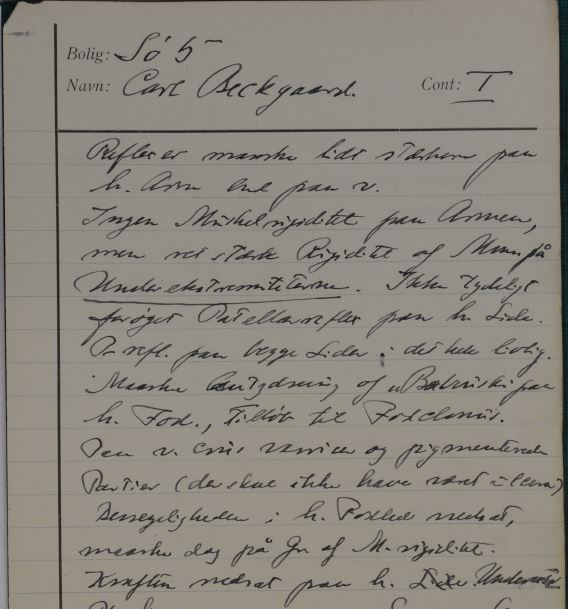 Bolig: Sö 5
Navn: Carl Beckgaard. Cont: I
Reflexer maaske lidt stærkere paa
h. Arm end paa v.
Ingen Muskelrigiditet paa Armen,
men ret stærk Rigiditet af Mm. på
Underekstremiteterne. Ikke tydeligt
forøget Patellarreflex paa h. Side.
P. refl. paa begge Sider i det hele livlig.
Maaske Antydning af Babinski paa
h. Fod., Tilløb til Fodclonus.
Paa v. Crus varicer og pigmenterede
Partier (der skal ikke have været ulcera)
Bevægeligheden i h. Fodled nedsat,
maaske dog på Gr. af M. rigiditet.
Kraften nedsat paa h. Side.